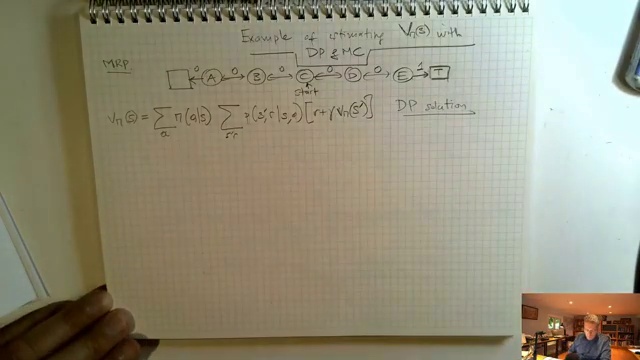 Example of estimating Vπ(s) with
DP & MC
MRP
0 A 0 B 0 C 0 D 0 E 1 T
start
Vπ(s) = Σ π(a|s) Σ p(s',r|s,a) [r + γVπ(s')] DP solution
a s',r